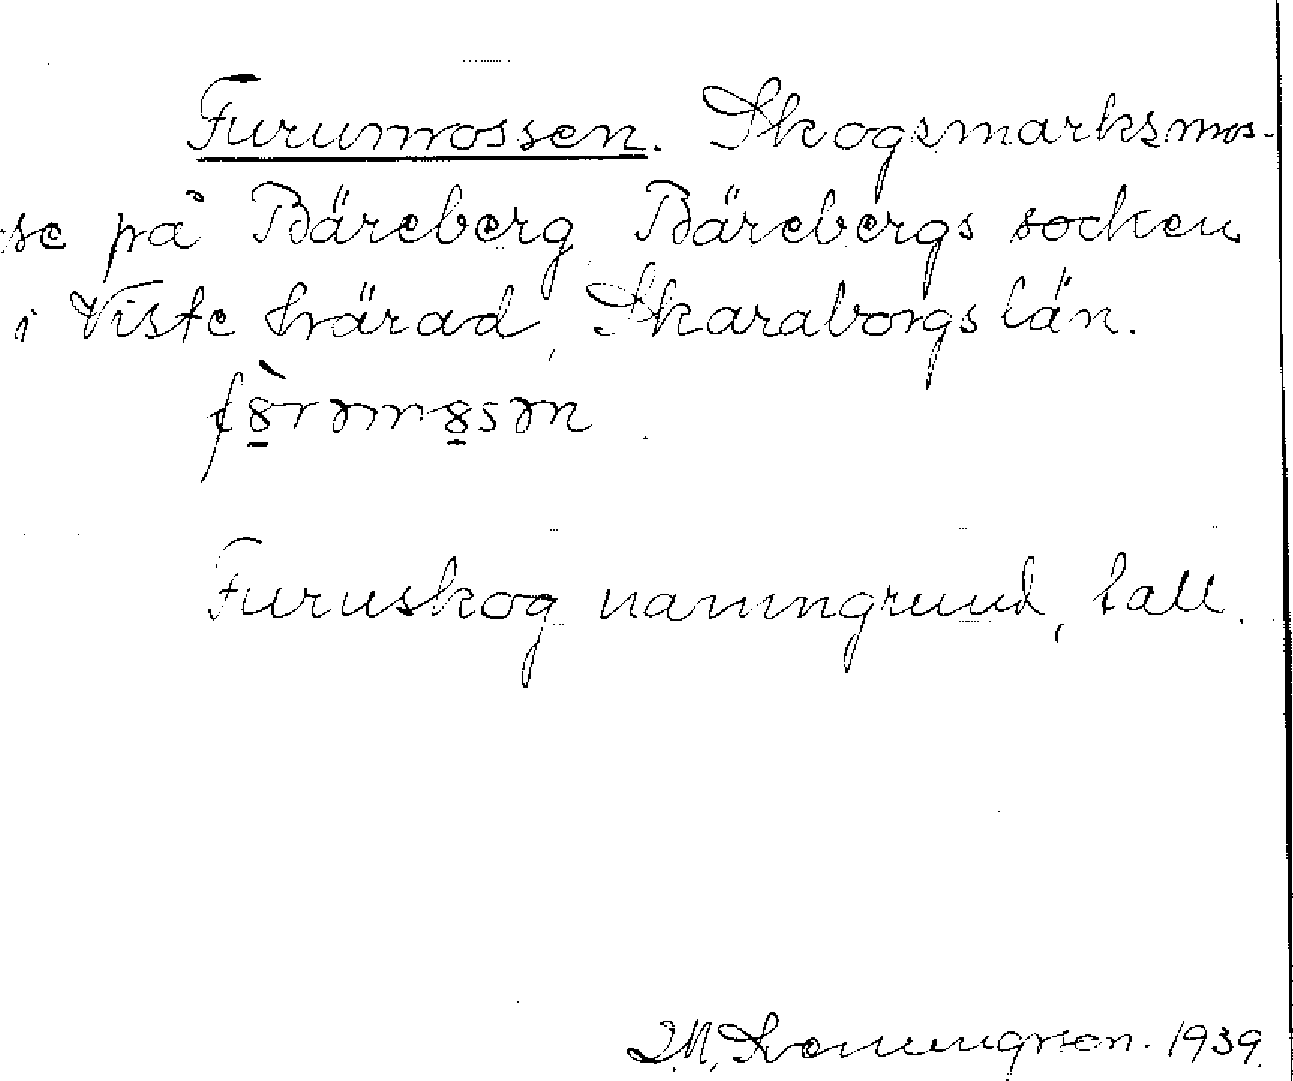 Furumossen. Skogsmarksmos-
se på Bäreberg Bärebergs socken
i Viste härad, Skaraborgs län.
fȣ̀rəmȣsən
Furuskog namngrund, tall.
1939.